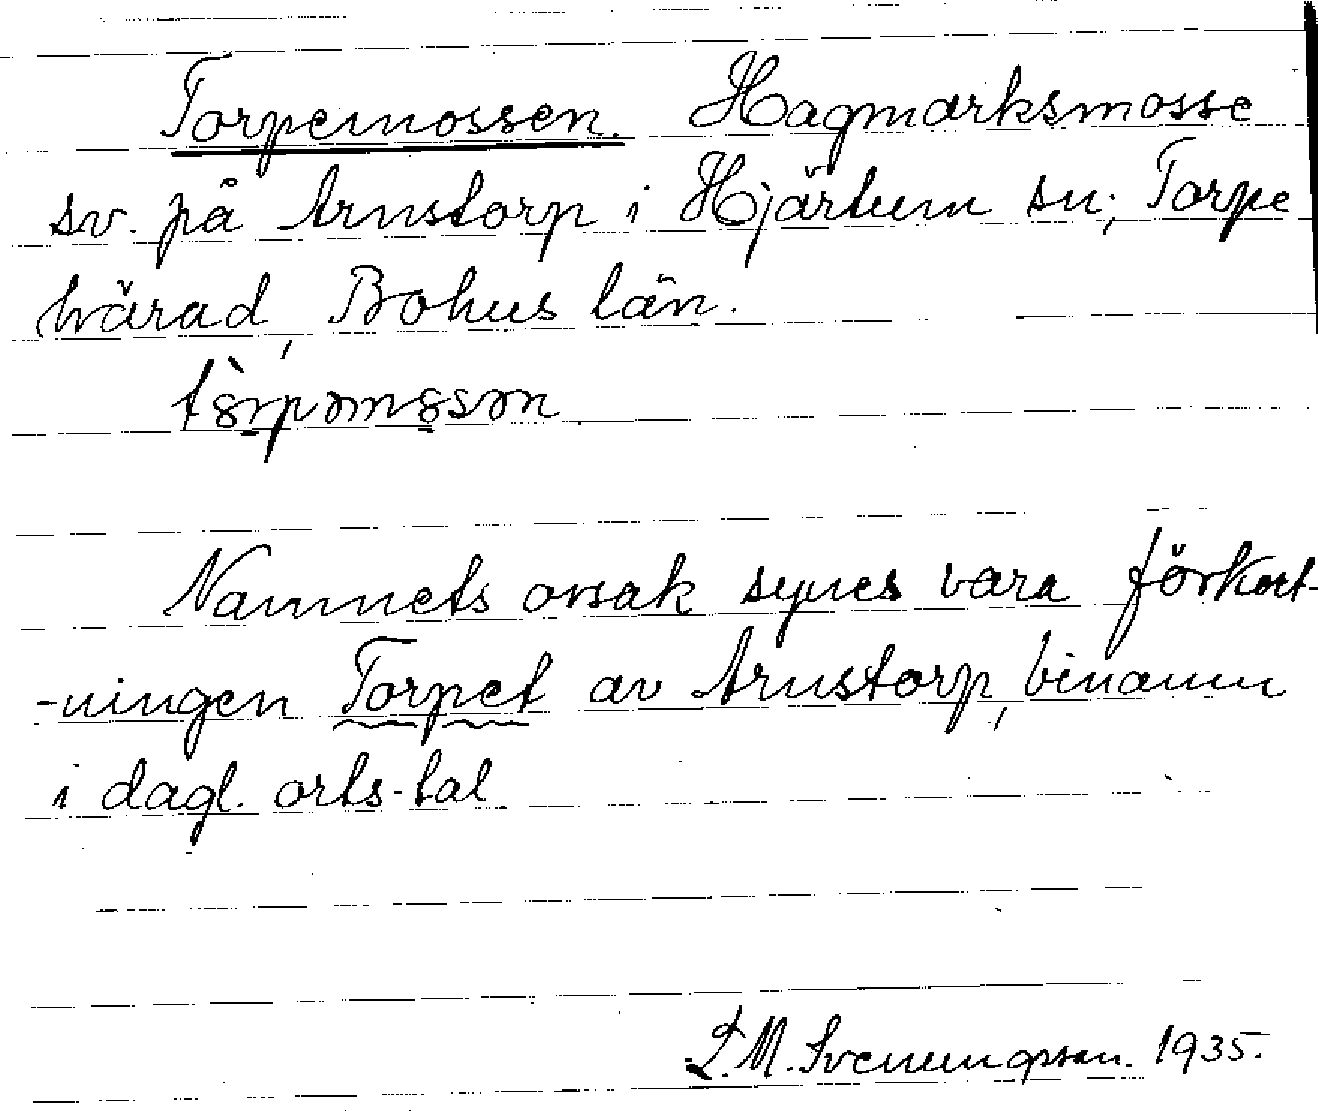 Torpemossen. Hagmarksmosse
sv. på Arnstorp i Hjärtum sn; Torpe
härad, Bohus län.
Namnets orsak synes vara förkort-
-ningen Torpet av Arnstorp, binamn
i dagl. orts-tal
L.M. Svenungsson. 1935.